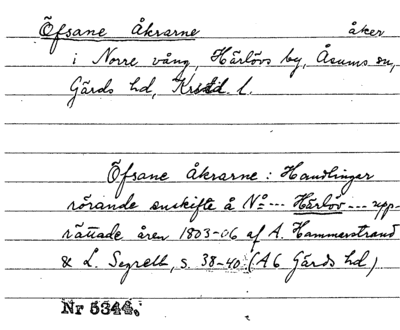 Öfsane Åkrarne åker
i Norre vång, Härlövs by, Åsums sn,
Gärds hd, Krstd l.
Öfsane Åkrarne: Handlingar
rörande enskifte å No --- Härlöv --- upp-
rättade åren 1803-06 af A. Hammarstrand
& L. Segrell, s. 38-40 (A6 Gärds hd)
Nr 5346.